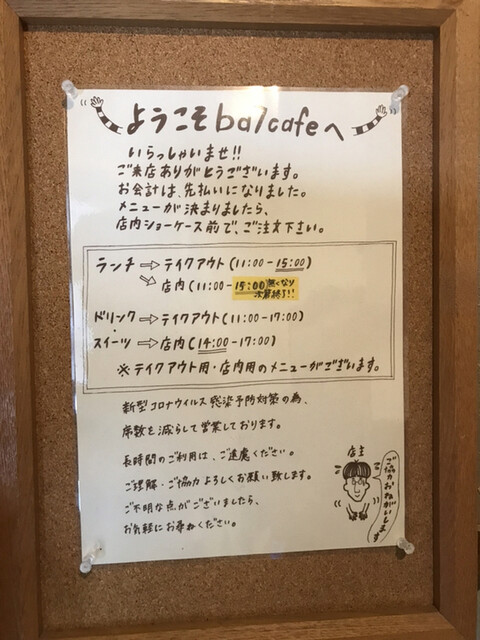 ようこそ ba7cafeへ
いらっしゃいませ!!
ご来店ありがとうございます。
お会計は、先払いになりました。
メニューが決まりましたら、
店内ショーケース前で、ご注文下さい。
ランチ → テイクアウト(11:00-15:00)
→ 店内(11:00-15:00 無くなり
次第終了!!
ドリンク → テイクアウト(11:00-17:00)
・
スイーツ → 店内(14:00-17:00)
※テイクアウト用・店内用のメニューがございます。
新型コロナウイルス感染予防対策の為、
席数を減らして営業しております。
長時間のご利用は、ご遠慮ください。
ご理解・ご協力よろしくお願い致します。
ご不明な点がございましたら、
お気軽にお尋ねください。
店主
ご協力おねがいします